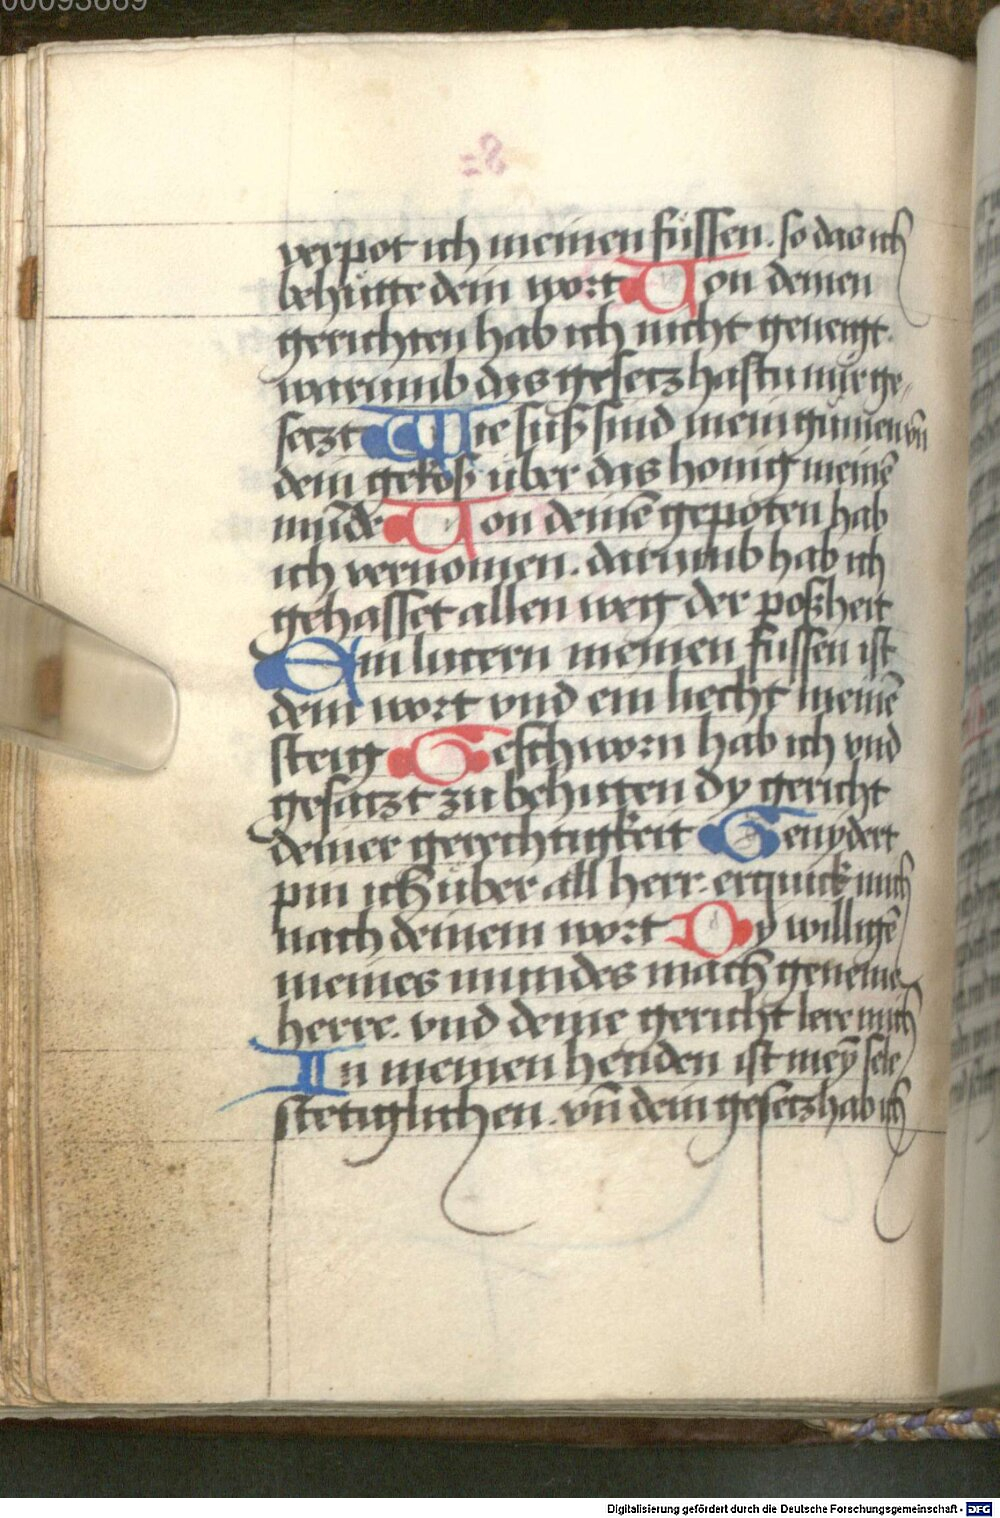 00093669
verpot ich meinen füssen. so das ich
behütte dein wort Von deinen
gerichten hab ich nicht geneigt.
warumb das gesetz hastu mir ge„
setzt Wie suß sind mein gumen vn̄
dein gekoß über das honig meinē
mūde Von deinē gepoten hab
ich vernomen. darumb hab ich
gehasset allen weg der poßheit
Ein lucern meinen fussen ist
dein wort vnd ein liecht meinē
steig Geschworn hab ich vnd
gesatzt zu behuten dy gericht
deiner gerechtigkeit Genydert
pin ich über all herr. erquick mich
nach deinem wort Dy willigē
meines mundes mach geneme
herre. vnd deine gericht lere mich
In meinen henden ist meȳ sele
stetiglichen. vn̄ dein gesetz hab ich
Digitalisierung gefördert durch die Deutsche Forschungsgemeinschaft - DFG